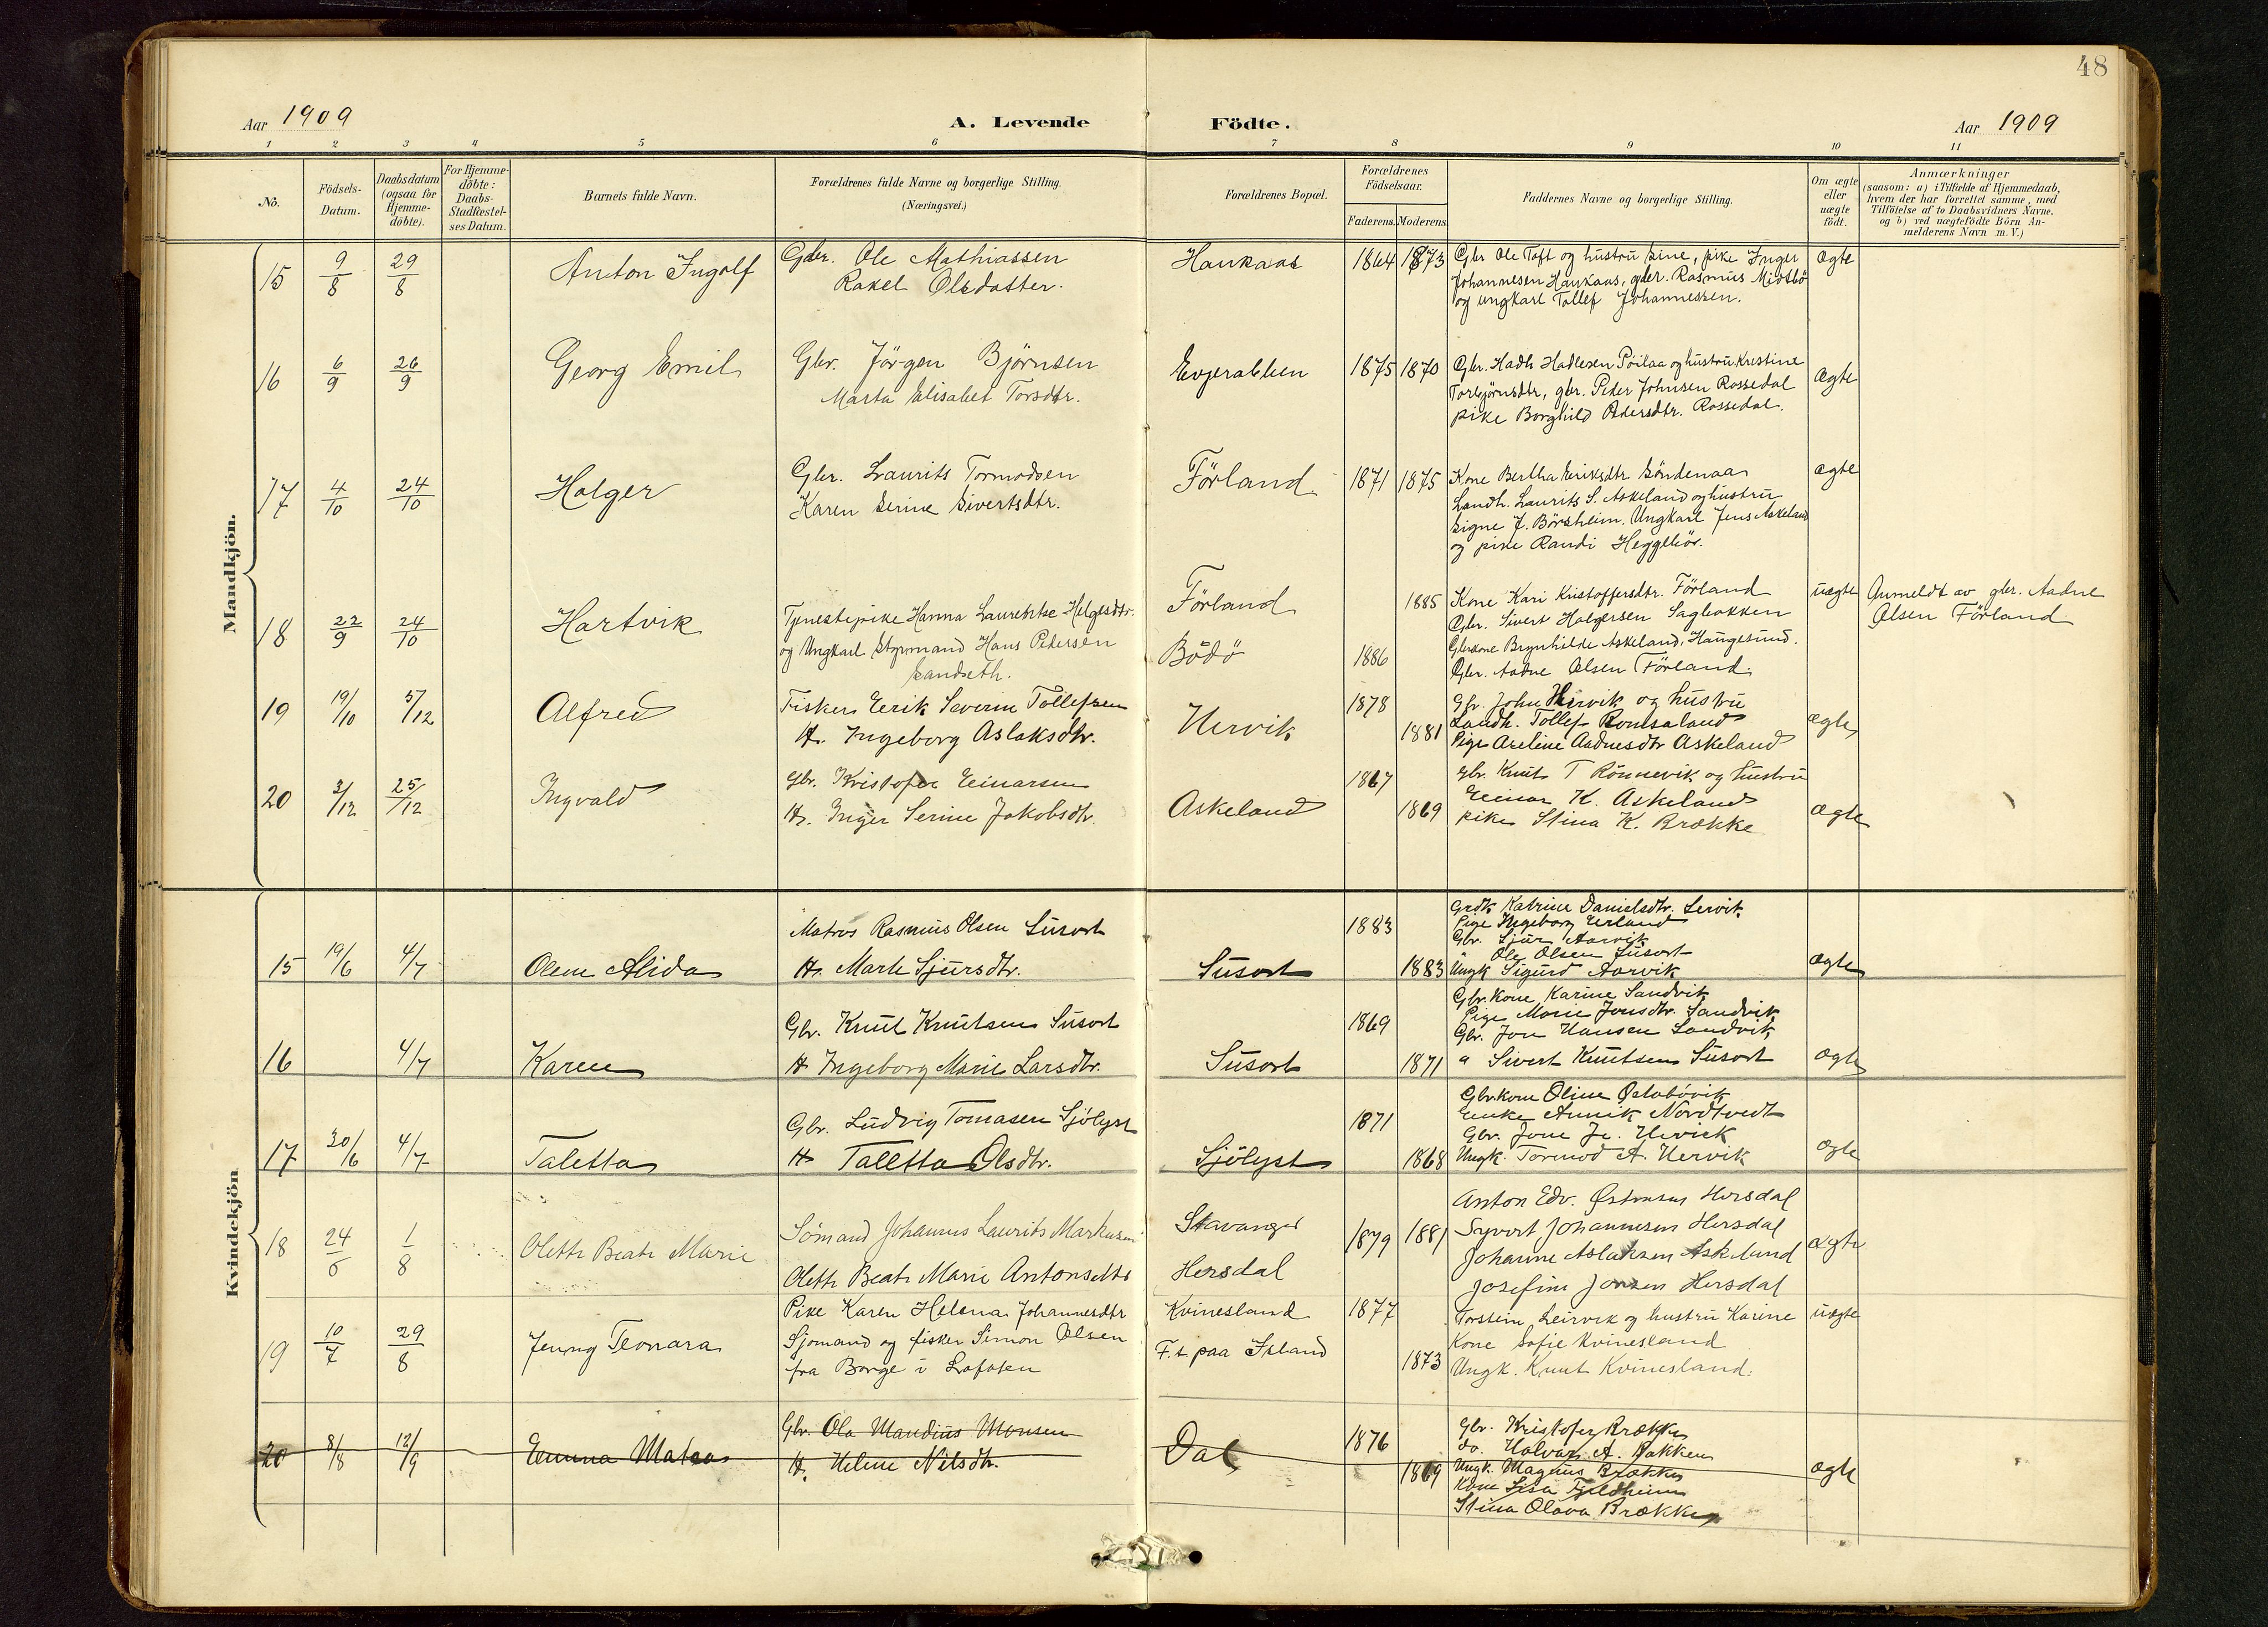 48
Aar 1909
A. Levende
Födte.
Aar 1909
1 2 3 4 5 6 7 8 9 10 11
No.
Födsels-
Datum.
Daabsdatum
(ogsaa for
Hjemme-
döbte).
For Hjemme-
döbte:
Daabs-
Stadfæstel-
ses Datum.
Barnets fulde Navn.
Forældrenes fulde Navne og borgerlige Stilling.
(Næringsvei.)
Forældrenes Bopæl.
Forældrenes
Födselsaar.
Faderens. Moderens.
Faddernes Navne og borgerlige Stilling.
Om ægte
eller
uægte
födt.
Anmærkninger
(saasom: a) i Tilfælde af Hjemmedaab,
hvem der har forrettet samme, med
Tilföielse af to Daabsvidners Navne.
og b) ved uægtefödte Börn An-
melderens Navn m. V.)
Mandkjön.
15 9/8 29/8 Anton Ingolf
Gbr. Ole Mathiassen
Rakel Olsdatter.
Haukaas 1864 1873
Gbr Ole Toft og hustru Sine, pike Inger
Johannesen Haukaas, gbr. Rasmus Midtbö
og ungkarl Tollef Johannessen.
Ægte
16 6/9 26/9 Georg Emil
Gbr. Jörgen Björnsen
Marta Elisabet Torsdtr.
1875 1870
Gbr. Hadle Hadlesen og hustru Kristine
Torbjörnsdtr, gbr. Peder Johnsen Rossedal
pike Borghild Pedersdtr. Rossedal.
Ægte
17 4/10 24/10 Holger
Gbr. Laurits Tormodsen
Karen Serine Sivertsdtr.
Förland 1871 1875
Kone Bertha Eriksdtr. Söndenaa
Landh. Laurits S. Askeland og hustru
Signe J. Börsheim. Ungkarl Jens Askeland
og pike Randi
Ægte
18 22/9 24/10 Hartvik
Tjenestepike Hanna Laurentse Helgesdtr.
og Ungkarl Styrmand Hans Pedersen
Sandseth.
Förland
Bödö
1885
1886
Kone Kari Kristoffersdtr. Förland
Gbr. Sivert Holgersen Sagbakken
Gbrkone Brynhilde Askeland, Haugesund.
Gbr. Aadne Olsen Förland.
uægte
Anmeldt av gbr. Aadne
Olsen Förland
19 19/10 5/12 Alfred
Fisker Eerik Severin Tollefsen
H. Ingeborg Aslaksdtr.
Hervik
1878
1881
Gbr. John Hervik og hustru
Landh. Tollef Romsaland
Pige Areline Aadnesdtr Askeland
ægte
20 3/12 25/12 Ingvald
Gbr. Kristofer Einarsen
H. Inger Serine Jakobsdtr.
Askeland
1867
1869
Gbr. Knut T Rönnevik og hustru
Einar K. Askeland
pike Stina K. Brække
Ægte
Kvindekjön
15 19/6 4/7 Olene Alida
Matros Rasmus Olsen Susort
H. Marte Sjursdtr.
Susort
1883
1883
Katrine Danielsdtr. Lervik
Pige Ingeborg Erland
Gbr. Sjur Aarvik
" Ole Olsen Susort
Ungk Sigurd Aarvik
ægte
16 4/7 Karen
Gbr. Knut Knutsen Susort
H Ingeborg Marie Larsdtr.
Susort
1869
1871
Gbr. Kone Karine Sandvik
Pige Marie Jonsdtr. Sandvik
Gbr. Jon Hansen Sandvik
" Sivert Knutsen Susort
ægte
17 30/6 4/7 Taletta
Gbr. Ludvig Tomasen Sjölyst
H Taletta Olsdtr.
Sjölyst
1871
1868
Gbrkone Oline Östebövik
Enke Annik Nordtvedt
Gbr. Jone Je. Hervick
Ungk. Tormod A. Hervik
ægte
18 24/6 1/8 Olette Beate Marie
Sömand Johannes Laurits Markusen
Olette Beate Marie Antonsdtr
Stavanger
Hersdal
1879 1881
Anton Edv. Østensen Hersdal
Syvert Johannesen Hersdal
Johanne Aslaksen Askelund
Josefine Jonsen Hersdal
ægte
19 10/7 29/8 Jenny Teonara
Pike Karen Helena Johannesdtr
Sjomand og fisker Simon Olsen
fra Borge i Lofoten
Kvinesland
F.t paa Island
1877
1873
Torstein Leirvik og hustru Karine
Kone Sofie Kvinesland
Ungk. Knut Kvinesland.
uægte
20 8/8 12/9 Emma Matea
Gbr. Ola Mandius Monsen
H. Helene Nilsdtr.
Dal
1876
1869
Gbr. Kristofer Brække
do. Halvar A. Bakken
Ungk. Magnus Brække
Kone Lisa Fjeldheim
Stina Olava Brække
ægte